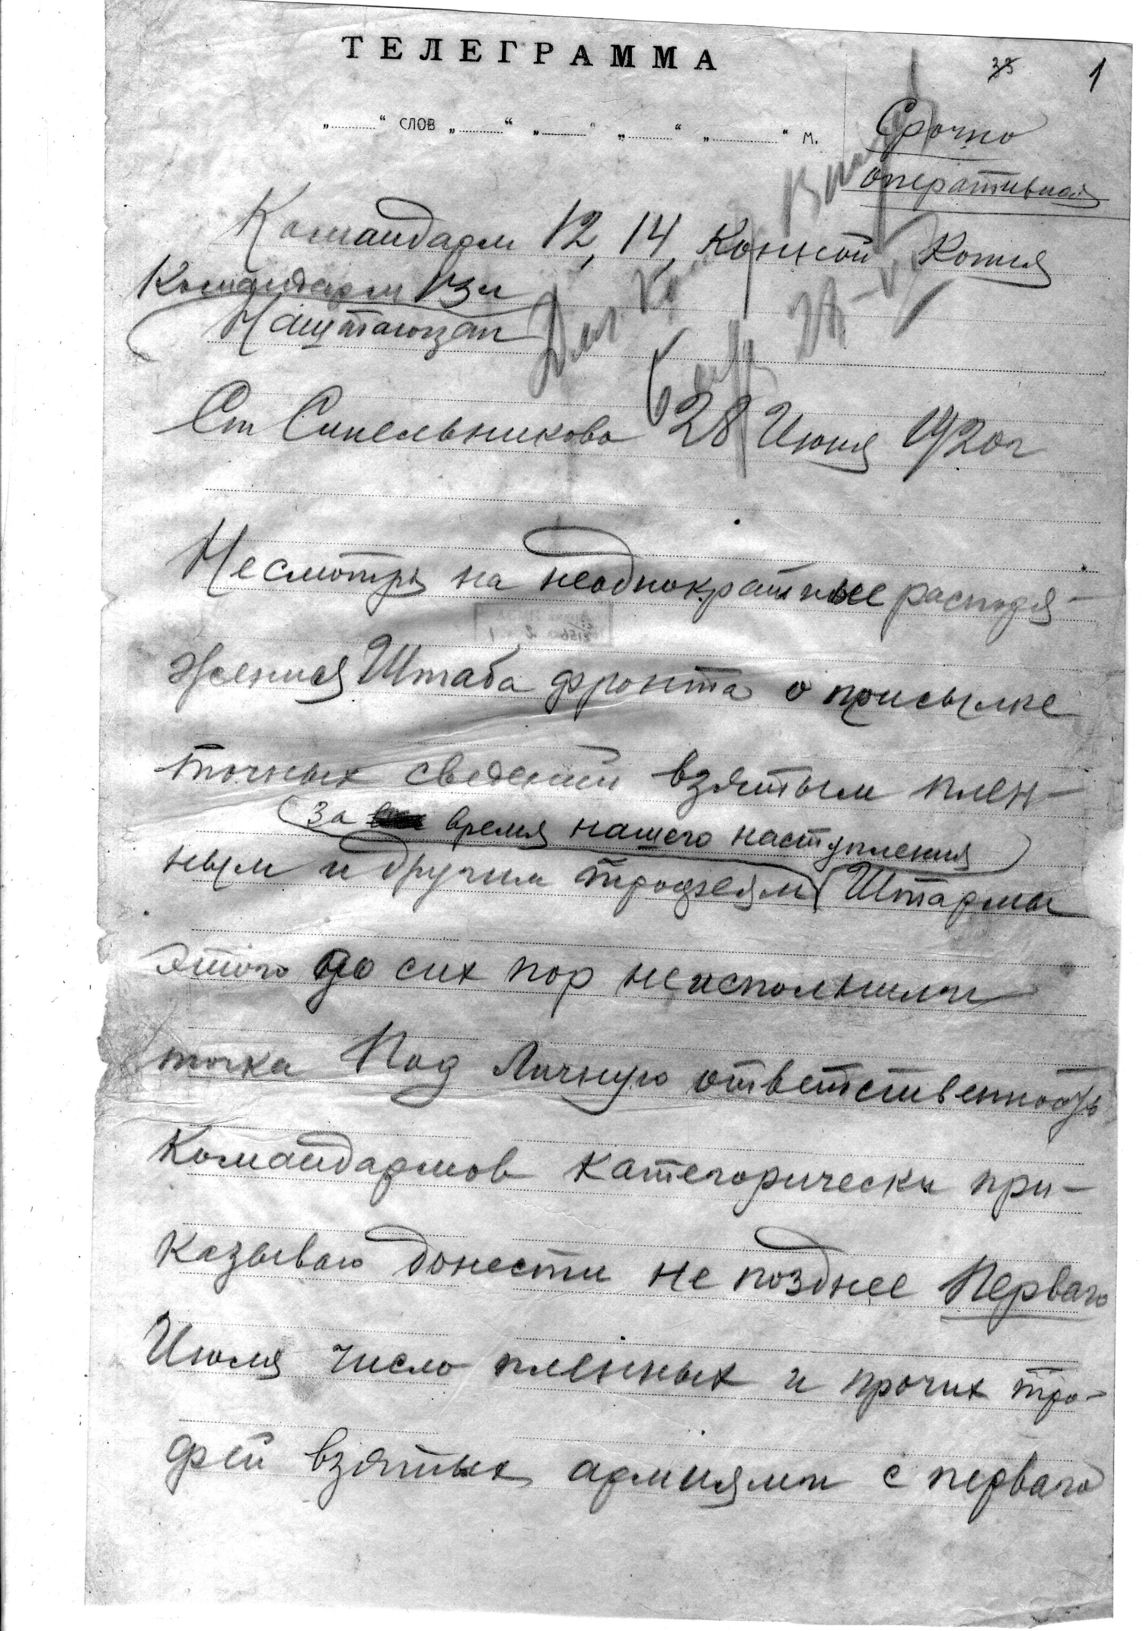 ТЕЛЕГРАММА
38 1
„ “ слов „ “ „ “ „ “ „ “ м.
Срочно
оперативная
Командарм 12, 14, Конной Копия
Командарм 13м
Наштаюзап
Ст Синельниково 28 Июня 1920г
Несмотря на неоднократные распоря-
жения Штаба фронта о присылке
точных сведений взятым плен-
за время нашего наступления
ным и другим трофеям Штармы
этого до сих пор неисполнили
точка Под личную ответственность
Командармов категорически при-
казываю донести не позднее Перваго
Июля число пленных и прочих тро-
фей взятых армиями с перваго